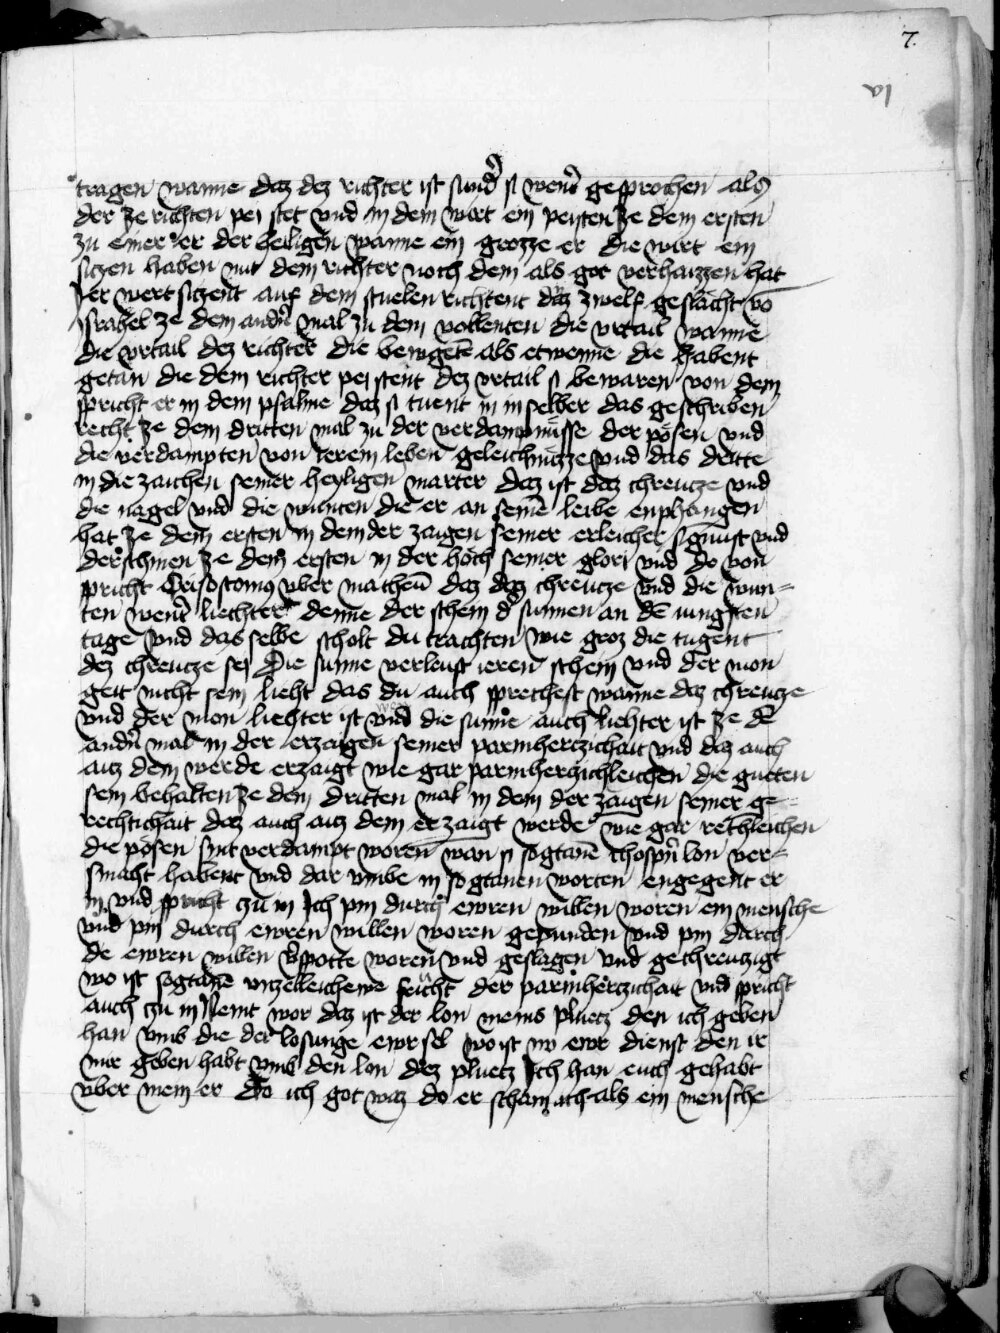 7.
vi
tragen wanne daz dez richter ist sunder si wenn gesprochen als
der ze richten pei stet vnd in dem wirt ein peisten ze dem ersten
zu einer er der heiligen wanne ein grozze er die wirt ein
siczen haben mit dem richter noch dem als got verhaizzen hat
Ier wert siczent auf dem stuelen richtent daz zwelf geslächt vō
Israhel ze dem andn̄ mal zu dem vollenten die vrtail wanne
die vrtail dez richter die bewgetē als etwenne die habent
getan die dem richter pei stent dez vrtail si bewaren von dem
spricht er in dem psalme daz si tuent in in selber das geschriben
recht ze dem dritten mal zu der verdampnüsse der pösen vnd
die verdampten von ierem leben geleichnüzze vnd das dritte
in die zaichen seiner heyligen marter daz ist daz chreucze vnd
die nagel vnd die wunten die er an seinē leibe enphangen
hat ze dem ersten in dem der zaigen seiner erleicher signūst vnd
der schinen ze dem ersten in der höch seiner glori vnd do von
pricht Crisostomus vber matheū daz daz chreucze vnd die wun=
ten wenn̄ liechter denne der schein d' sunnen an dē iungsten
tage vnd das selbe scholt du trachten wie groz die tugent
dez chreucze sei Die sunne verleust ieren schein vnd der mon
geit nicht sein lieht das du auch sprechest wanne daz chreucze
vnd der mon liehter ist vnd die sunne auch liehter ist ze dē
andn̄ mal in der erzaigen seiner parmherczichait vnd daz auch
auz dem werde erzaigt wie gar parmherczichleichen die gueten
sein behalten ze dem dritten mal in dem der zaigen seiner ge=
rechtichait daz auch auz dem erzaigt werde wie gar rechleichen
die pösen sint verdampt woren wan si sogtanē chospn̄ lon ver=
smacht habent vnd dar vmbe in sogtanen worten engegent er
in vnd spricht zu in Ich pin durch ewren willen woren ein mensche
vnd pin durch ewren willen woren gepunden vnd pin durch
de ewren willen v̄spotte woren vnd geslagen vnd gechreuczigt
wo ist sogtanē vnzelleichewe frücht der parmherczichait vnd spricht
auch zu in Nemt wor daz ist der lon meins pluetz den ich geben
han vmb die der losunge ewr sel wo ist nv ewr dienst den ir
mir geben habt vmb den lon dez pluetz Ich han euch gehabt
vber mein er do ich got waz do er schain ich als ein mensche